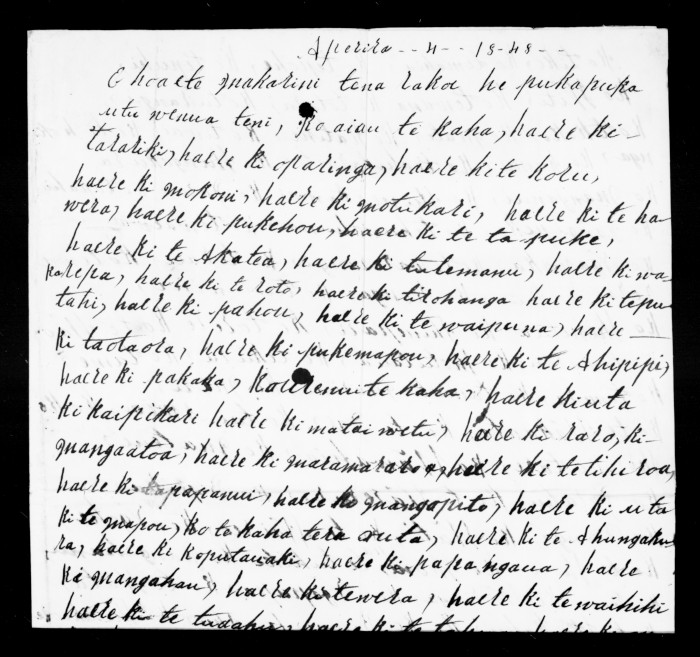 Aperira - - 4 - - 18-48 - -
E hoa e te makarini tena rakoe he pukapuka
utu wenua teni, ko aiau te kaha, haere ki
tarariki, haere ki oparinga, haere ki te koru,
haere ki mokoni, haere ki motukari, haere ki te ha
wera, haere ki pukehou, haere ki te ta puke,
haere ki te Akatea, haere ki tutemanu, haere ki wa-
karepa, haere ki te roto, haere ki tirohanga haere ki tepu
tahi, haere ki pahou, haere ki te waipuna, haere
ki taotaora, haere ki pukemapou, haere ki te Ahipipi,
haere ki pakaka, te kaha, haere ki uta
ki kaipikari haere ki matai wetu, haere ki raro, ki-
mangaatoa, haere ki maramarato, haere ki te tihi roa,
haere ki tapapanui, haere ki mangapito, haere ki uta
ki te mapou, ko te kaha tera outa, haere ki te Ahungaku
ra, haere ki koputauaki, haere ki papangaua, haere
ki mangahau, haere ki tewera, haere ki te waihihi
haere ki te haere ki te haere ki